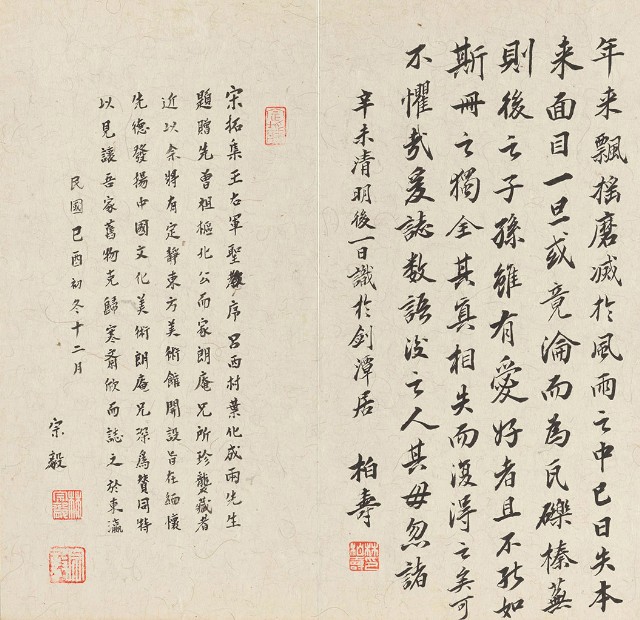 年来飄搖磨滅於風雨之中已日失本
来面目一旦或竟淪而為瓦礫榛蕪
則後之子孫雖有愛好者且不能如
斯冊之獨全其真相失而復得之矣可
不懼哉爰誌数語後之人其毋忽諸
辛未清明後一日識於劍潭居
柏壽
宋拓集王右軍聖教序呂西村葉化成兩先生
題贈先曾祖樞北公而家朗庵兄所珍襲蔵者
近以余將有定靜東方美術館開設旨在緬懷
先德發揚中國文化美術朗庵兄深為贊同特
以見讓吾家舊物克歸寒齋欣而誌之於東瀛
民國己酉初冬十二月
宗毅